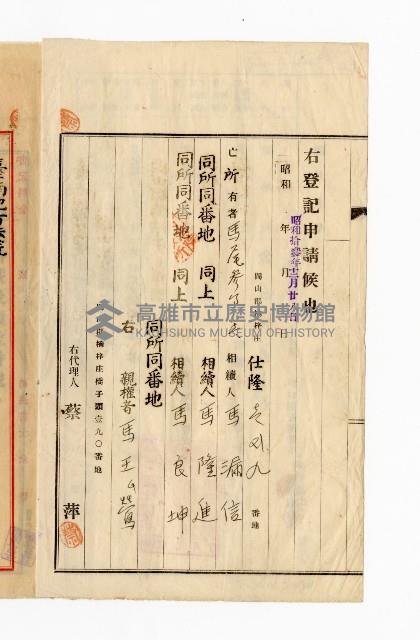 右登記申請候也
昭和 年 月 日
昭和拾叁年十二月廿
岡山郡楠梓庄 仕隆 番地
亡所有者馬尾 相續人馬漏信
同所同番地 同上 相續人馬隆進
同所同番地 同上 相續人馬良坤
同所同番地
右 親權者馬王
楠梓庄橋子頭壹九〇番地
右代理人 蔡萍
高雄市立歷史博物館
KAOHSIUNG MUSEUM OF HISTORY